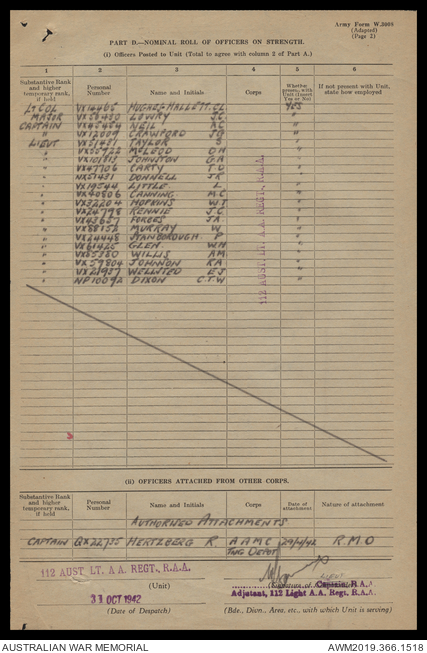 Army Form W.3008
(Adapted)
(Page 2)
PART D.—NOMINAL ROLL OF OFFICERS ON STRENGTH.
(i) Officers Posted to Unit (Total to agree with column 2 of Part A.)
1 2 3 4 5 6
Substantive Rank and higher temporary rank, if held Personal Number Name and Initials Corps Whether present with Unit (Insert Yes or No) If not present with Unit, state how employed
Lt COL VX14465 HUGHES HALLETT. C.L. YES
MAJOR VX58430 LOWRY J.C. "
CAPTAIN NEIL A.C. "
" VX12009 CRAWFORD J.G. "
LIEUT VX51481 TAYLER S "
" McLEOD D.H. "
" VX101813 JOHNSTON G.A. "
" VX47706 CARTY T.O "
" DONNELL J.K "
" VX19544 LITTLE L "
" VX40806 CANNING M.C. "
" VX32204 HOPKINS W.T. "
" VX24798 RENNIE J.C. "
" VX43657 FORBES J.A. "
" VX88152 MURRAY W "
" STANBOROUGH P "
" VX61425 GLEN W.H "
" VX65380 WILLIS A.M. "
" VX59804 JOHNSON R.A. "
" VX21957 WELLSTED E.J "
" NP10092 DIXON C.T.W "
112 AUST. LT. A.A. REGT., R.A.A.
(ii) OFFICERS ATTACHED FROM OTHER CORPS.
Substantive Rank and higher temporary rank, if held Personal Number Name and Initials Corps Date of attachment Nature of attachment
AUTHORISED ATTACHMENTS
CAPTAIN HERTZBERG R A A M C 29/4/42 R.M.O
TNG DEPOT
112 AUST. LT. A.A. REGT., R.A.A.
(Unit)
Captain, R.A.A.
Adjutant, 112 Light A.A. Regt. R.A.A.
31 OCT 1942
(Date of Despatch)
(Bde., Divn., Area, etc., with which Unit is serving)
AUSTRALIAN WAR MEMORIAL
AWM2019.366.1518